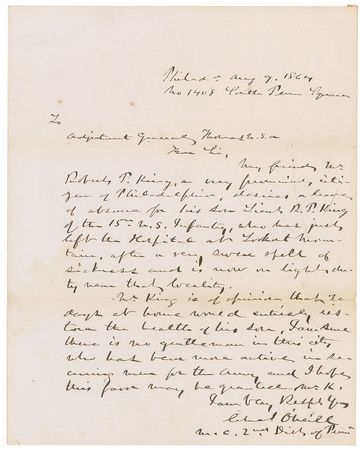 Philada Aug 9. 1864
No 1408 South Penn Square
To
Adjutant General Thomas U.S.A
Dear Sir,
My friend Mr
Robert P. King, a very prominent citi-
zen of Philadelphia, desires a leave
of absence for his son Lieut R. P. King
of the 15th U.S. Infantry, who has just
left the Hospital at Lookout Moun-
tain, after a very severe spell of
sickness and is now on light du-
ty near that locality.
Mr King is of opinion that 20
days at home would entirely res-
tore the health of his son, I am sure
there is no gentleman in this city
who has been more active in se-
curing men for the Army and I hope
this favor may be granted Mr. K.
I am Very Respfy Yours
Chas O'Neill
M.C. 2nd Dist of Penn